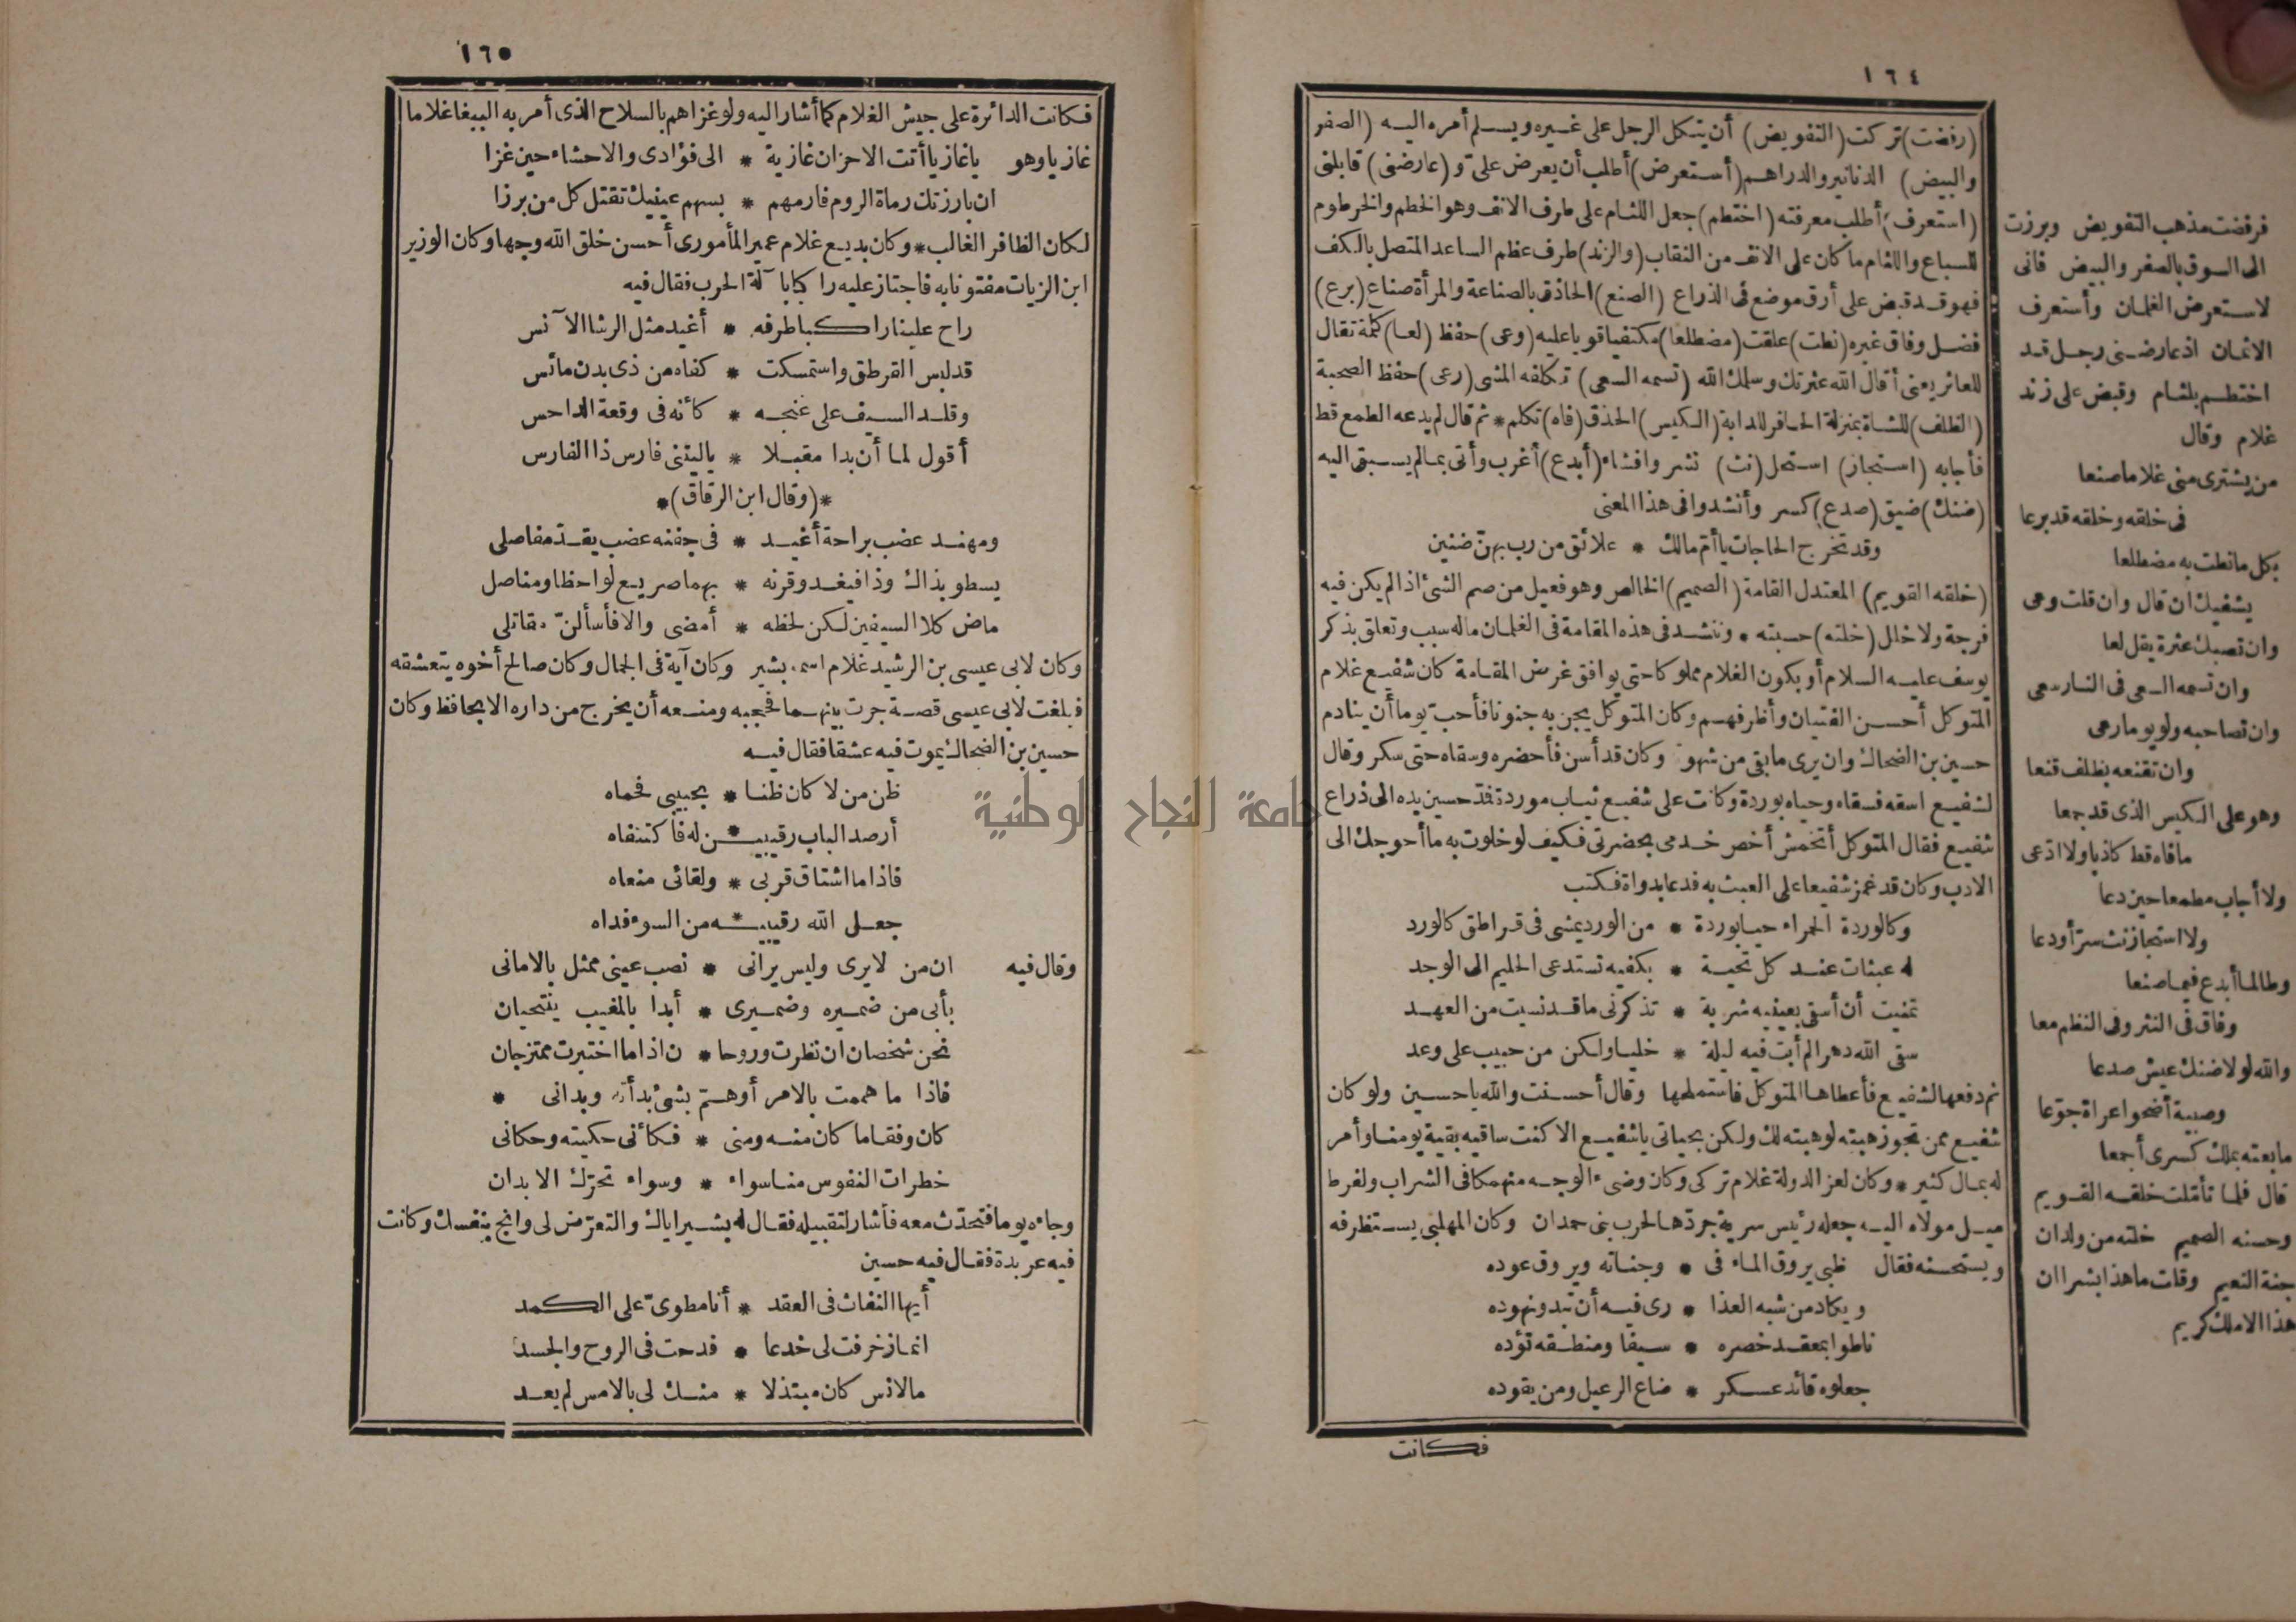 ١٦٤
(رفضت) تركت (التفويض) أن يتكل الرجل على غيره ويسلم أمره اليه (الصفر
والبيض) الدنانير والدراهم (أستعرض) أطلب أن يعرض علىّ و (عارضنى) قابلنى
(استعرف) أطلب معرفته (اختطم) جعل اللثام على طرف الانف وهو الخطم والخرطوم
للسباع واللثام ما كان على الانف من النقاب (والزند) طرف عظم الساعد المتصل بالكف
فهو قد قبض على أرق موضع فى الذراع (الصنع) الحاذق بالصناعة والمرأة صناع (برع)
فضل وفاق غيره (نطت) علقت (مضطلعا) مكتفيا قويا عليه (وعى) حفظ (لعا) كلمة تقال
للعاثر يعنى أقال الله عثرتك وسلمك الله (تسمه السعى) تكلفه المشى (رعى) حفظ الصحبة
(الظلف) للشاة بمنزلة الحافر للدابة (الكيس) الحذق (فاه) تكلم * ثم قال لم يدعه الطمع قط
فأجابه (استجاز) استحل (نث) نشر وافشاء (أبدع) أغرب وأتى بما لم يسبق اليه
(ضنك) ضيق (صدع) كسر وأنشدوا فى هذا المعنى
وقد تخرج الحاجات يا أم مالك * علائق من رب بهن ضنين
(خلقه القويم) المعتدل القامة (الصميم) الخالص وهو فعيل من صم الشئ اذا لم يكن فيه
فرجة ولا خلل (خلته) حسبته * وننشد فى هذه المقامة فى الغلمان ما له سبب وتعلق بذكر
يوسف عليه السلام أو يكون الغلام مملوكا حتى يوافق غرض المقامة كان شفيع غلام
المتوكل أحسن الفتيان وأظرفهم وكان المتوكل يجن به جنونا فأحب يوما أن ينادم
حسين بن الضحاك وان يرى ما بقى من شهوته وكان قد أسن فأحضره وسقاه حتى سكر وقال
لشفيع اسقه فسقاه وحياه بوردة وكانت على شفيع ثياب موردة فمدّ حسين يده الى ذراع
شفيع فقال المتوكل أتخمش أخص خدمى بحضرتى فكيف لو خلوت به ما أحوجك الى
الادب وكان قد غمز شفيعا على العبث به فدعا بدواة فكتب
وكالوردة الحمراء حيا بوردة * من الورد يمشى فى قراطق كالورد
له عبثات عند كل تحية * بكفيه تستدعى الحليم الى الوجد
تمنيت أن أسقى بعينيه شربة * تذكرنى ما قد نسيت من العهد
سقى الله دهرا لم أبت فيه ليلة * خليا ولكن من حبيب على وعد
ثم دفعها لشفيع فأعطاها المتوكل فاستملحها وقال أحسنت والله يا حسين ولو كان
شفيع ممن تجوز هبته لوهبته لك ولكن بحياتى يا شفيع الا كنت ساقيه بقية يومنا وأمر
له بمال كثير * وكان لعز الدولة غلام تركى وكان وضىء الوجه منهمكا فى الشراب ولفرط
ميل مولاه اليه جعله رئيس سرية جردها لحرب بنى حمدان وكان المهلبى يستظرفه
ويستحسنه فقال ظبى يروق الماء فى * وجناته ويروق عوده
ويكاد من شبه العذا * رى فيه أن تبدو نهوده
ناطوا بمعقد خصره * سيفا ومنطقه تؤده
جعلوه قائد عسكر * ضاع الرعيل ومن يقوده
فكانت
فرفضت مذهب التفويض وبرزت
الى السوق بالصفر والبيض فانى
لاستعرض الغلمان وأستعرف
الاثمان اذ عارضنى رجل قد
اختطم بلثام وقبض على زند
غلام وقال
من يشترى منى غلاما صنعا
فى خلقه وخلقه قد برعا
بكل ما نطت به مضطلعا
يشفيك ان قال وان قلت وعى
وان تصبك عثرة يقل لعا
وان تسمه السعى فى النار سعى
وان تصاحبه ولو يوما رعى
وان تقنعه بظلف قنعا
وهو على الكيس الذى قد جمعا
ما فاه قط كاذبا ولا ادّعى
ولا أجاب مطمعا حين دعا
ولا استجاز نث سرّ أودعا
وطالما أبدع فيما صنعا
وفاق فى النثر وفى النظم معا
والله لولا ضنك عيش صدعا
وصبية أضحوا عراة جوّعا
ما بعته بملك كسرى أجمعا
قال فلما تأملت خلقه القويم
وحسنه الصميم خلته من ولدان
جنة النعيم وقلت ما هذا بشرا ان
هذا الا ملك كريم
١٦٥
فكانت الدائرة على جيش الغلام كما أشار اليه ولو غزاهم بالسلاح الذى أمر به الببغا غلاما
غازيا وهو يا غازيا أتت الاحزان غازية * الى فؤادى والاحشاء حين غزا
ان بارزتك رماة الروم فارمهم * بسهم عينيك تقتل كل من برزا
لكان الظافر الغالب * وكان بديع غلام عمير المأمورى أحسن خلق الله وجها وكان الوزير
ابن الزيات مفتونا به فاجتاز عليه راكبا با آلة الحرب فقال فيه
راح علينا راكبا طرفه * أغيد مثل الرشا الآنس
قد لبس القرطق واستمسكت * كفاه من ذى بدن مائس
وقلد السيف على غنجه * كأنه فى وقعة الداحس
أقول لما أن بدا مقبلا * يا ليتنى فارس ذا الفارس
*(وقال ابن الرقاق)*
ومهند عضب براحة أغيد * فى جفنه عضب يقدّ مفاصلى
يسطو بذاك وذا فيغدو قرنه * بهما صريع لواحظ ومناصل
ماض كلا السيفين لكن لحظه * أمضى والا فأسألنّ مقاتلى
وكان لابى عيسى بن الرشيد غلام اسمه بشير وكان آية فى الجمال وكان صالح أخوه يتعشقه
فبلغت لابى عيسى قصة جرت بينهما فحجبه ومنعه أن يخرج من داره الا بحافظ وكان
حسين بن الضحاك يموت فيه عشقا فقال فيه
ظن من لا كان ظنا * بحبيبى فحماه
أرصد الباب رقيبين * له فاكتنفاه
فاذا ما اشتاق قربى * ولقائى منعاه
جعل الله رقيبيه * من السوء فداه
وقال فيه ان من لا يرى وليس يرانى * نصب عينى ممثل بالامانى
بأبى من ضميره وضميرى * أبدا بالمغيب ينتحيان
نحن شخصان ان نظرت وروحا * ن اذا ما اختبرت ممتزجان
فاذا ما هممت بالامر أو هـمّ بشئ بدأته وبدانى *
كان وفقا ما كان منه ومنى * فكأنى حكيته وحكانى
خطرات النفوس منا سواء * وسواء تحرّك الابدان
وجاءه يوما فتحدّث معه فأشار لتقبيله فقال له بشير اياك والتعرّض لى وانج بنفسك وكانت
فيه عربدة فقال فيه حسين
أيها النفاث فى العقد * أنا مطوىّ على الكمد
انما زخرفت لى خدعا * قدحت فى الروح والجسد
ما لانس كان مبتذلا * منك لى بالامس لم يعد
جامعة النجاح الوطنية